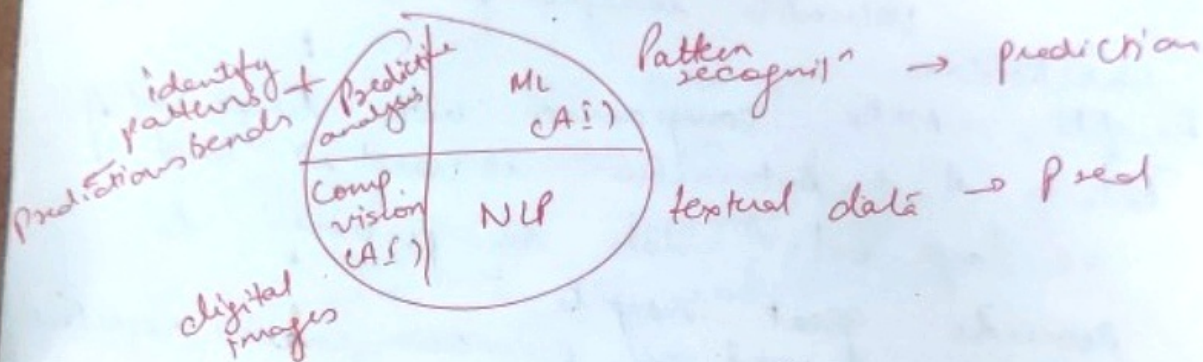 identify
patterns +
predictions bends
Predictive
analysis
ML
(AI)
Pattern
recognitⁿ → prediction
Comp.
vision
(AI)
NLP
textual data → Pred
digital
images